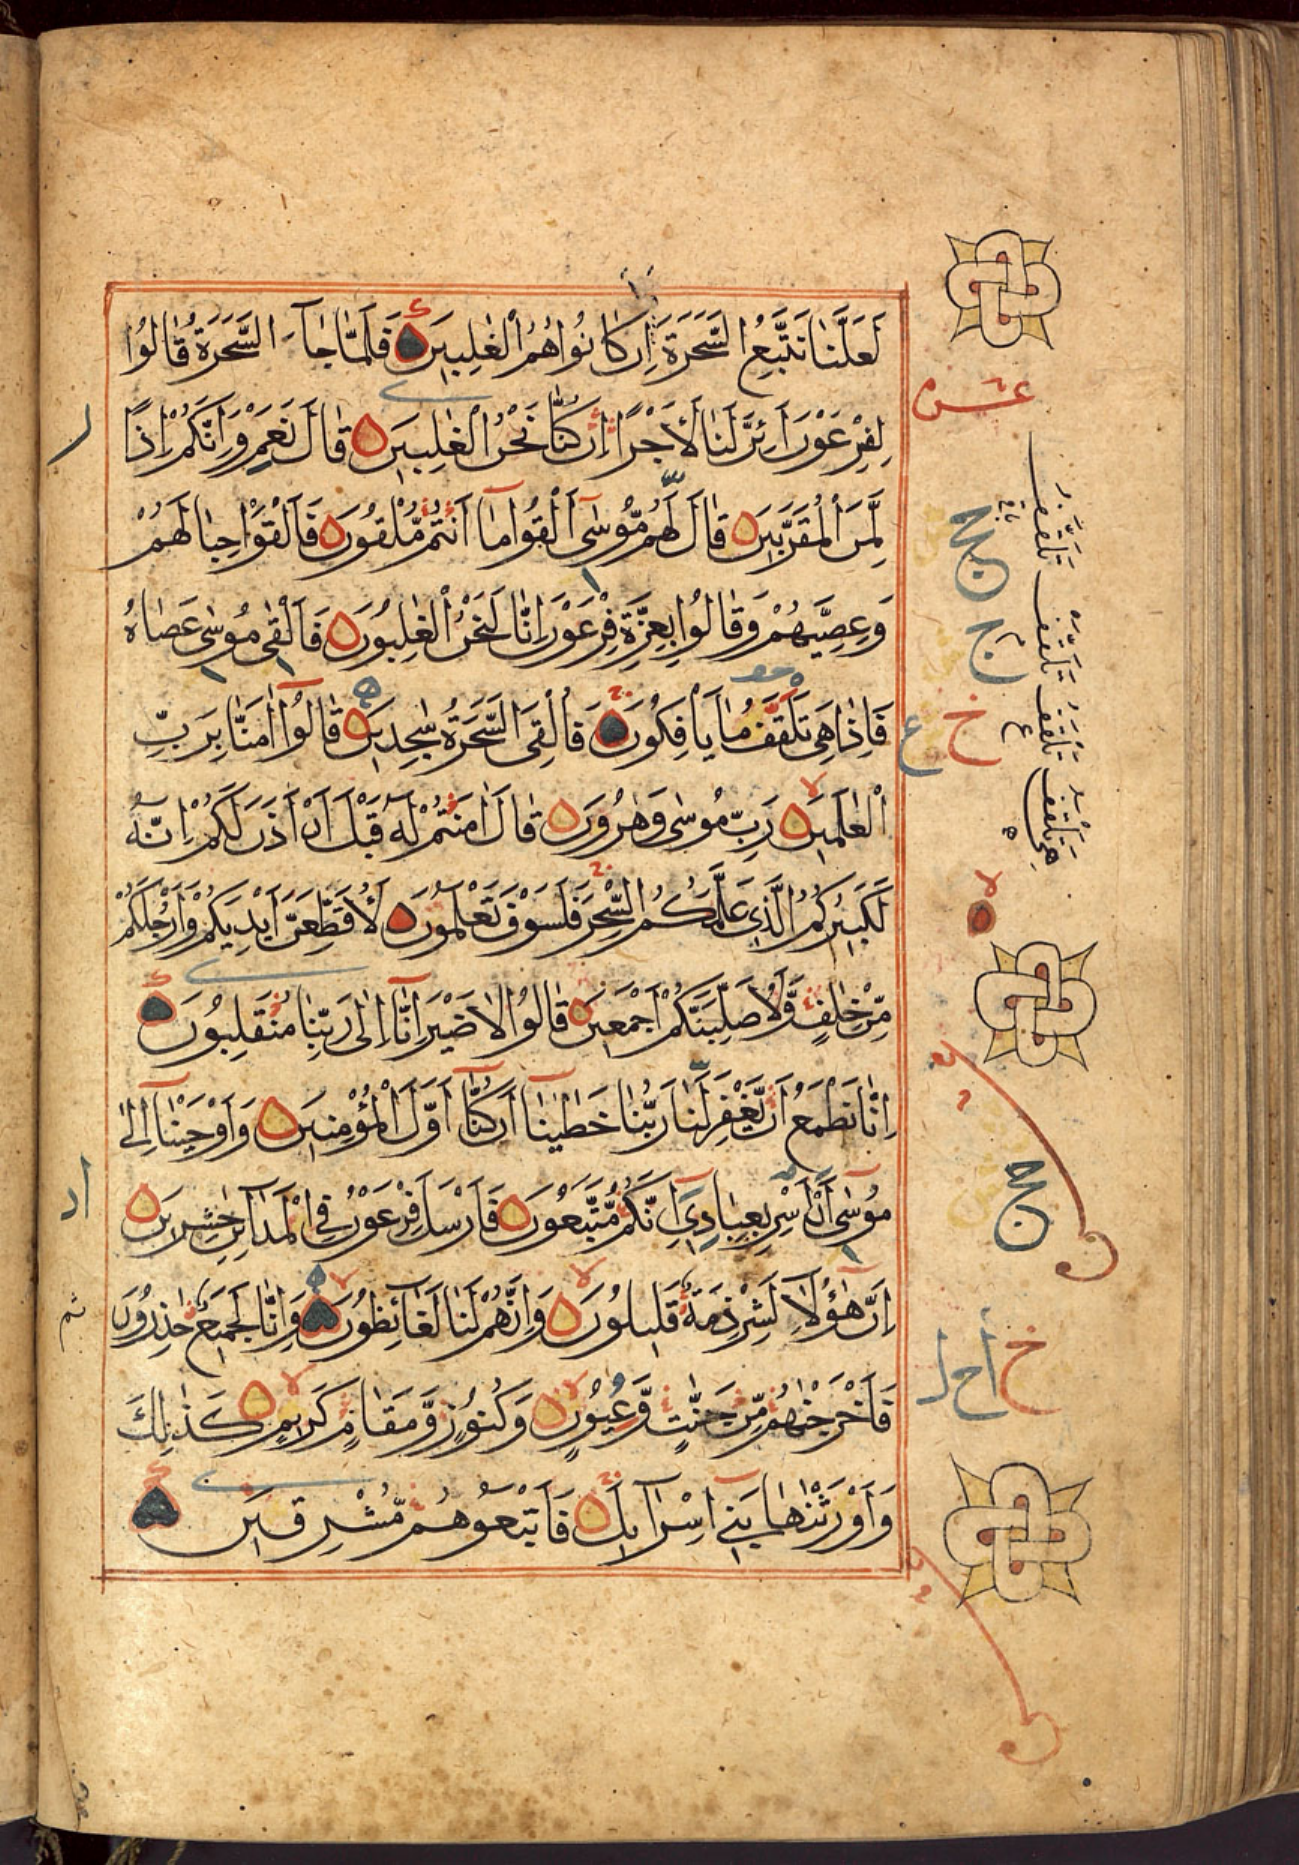 لَعَلَّنَا نَتَّبِعُ السَّحَرَةَ اِنْ كَانُوا هُمُ الْغٰلِبِينَ فَلَمَّا جَآءَ السَّحَرَةُ قَالُوا
لِفِرْعَوْنَ اَئِنَّ لَنَا لَأَجْرًا اِنْ كُنَّا نَحْنُ الْغٰلِبِينَ قَالَ نَعَمْ وَاِنَّكُمْ اِذًا
لَّمِنَ الْمُقَرَّبِينَ قَالَ لَهُمْ مُّوسٰٓى اَلْقُوا مَآ اَنْتُمْ مُّلْقُونَ فَاَلْقَوْا حِبَالَهُمْ
وَعِصِيَّهُمْ وَقَالُوا بِعِزَّةِ فِرْعَوْنَ اِنَّا لَنَحْنُ الْغٰلِبُونَ فَاَلْقٰى مُوسٰى عَصَاهُ
فَاِذَا هِىَ تَلْقَفُ مَا يَاْفِكُونَ فَاُلْقِىَ السَّحَرَةُ سٰجِدِينَ قَالُوٓا اٰمَنَّا بِرَبِّ
الْعٰلَمِينَ رَبِّ مُوسٰى وَهٰرُونَ قَالَ اٰمَنْتُمْ لَهُ قَبْلَ اَنْ اٰذَنَ لَكُمْ اِنَّهُ
لَكَبِيرُكُمُ الَّذِى عَلَّمَكُمُ السِّحْرَ فَلَسَوْفَ تَعْلَمُونَ لَأُقَطِّعَنَّ اَيْدِيَكُمْ وَاَرْجُلَكُمْ
مِّنْ خِلٰفٍ وَّلَأُصَلِّبَنَّكُمْ اَجْمَعِينَ قَالُوا لَا ضَيْرَ اِنَّآ اِلٰى رَبِّنَا مُنْقَلِبُونَ
اِنَّا نَطْمَعُ اَنْ يَّغْفِرَ لَنَا رَبُّنَا خَطٰيٰنَآ اَنْ كُنَّآ اَوَّلَ الْمُؤْمِنِينَ وَاَوْحَيْنَآ اِلٰى
مُوسٰٓى اَنْ اَسْرِ بِعِبَادِىٓ اِنَّكُمْ مُّتَّبَعُونَ فَاَرْسَلَ فِرْعَوْنُ فِى الْمَدَآئِنِ حٰشِرِينَ
اِنَّ هٰٓؤُلَآءِ لَشِرْذِمَةٌ قَلِيلُونَ وَاِنَّهُمْ لَنَا لَغَآئِظُونَ وَاِنَّا لَجَمِيعٌ حٰذِرُونَ
فَاَخْرَجْنٰهُمْ مِّنْ جَنّٰتٍ وَّعُيُونٍ وَكُنُوزٍ وَّمَقَامٍ كَرِيمٍ كَذٰلِكَ
وَاَوْرَثْنٰهَا بَنِىٓ اِسْرَآئِيلَ فَاَتْبَعُوهُمْ مُّشْرِقِينَ
عشر